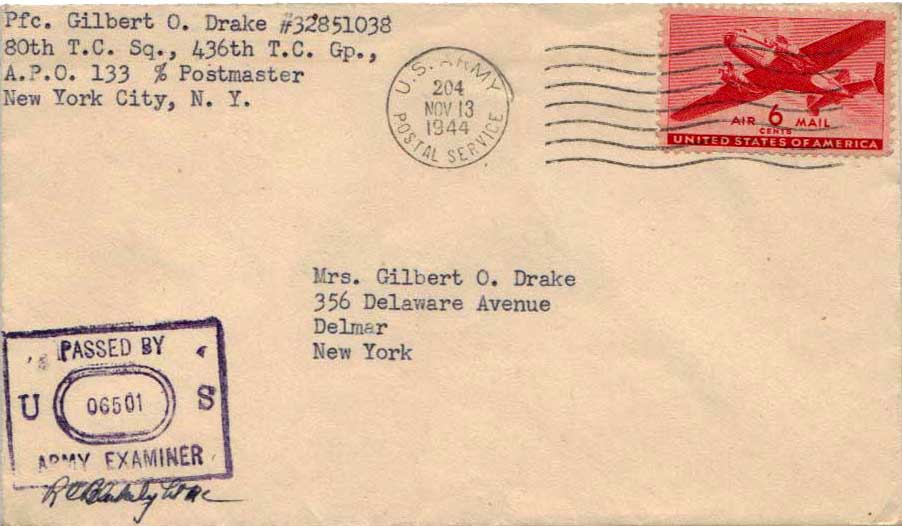 Pfc. Gilbert O. Drake #32851038
80th T.C. Sq., 436th T.C. Gp.,
A.P.O. 133 % Postmaster
New York City, N. Y.
U.S. ARMY
204
NOV 13
1944
POSTAL SERVICE
AIR 6 MAIL
CENTS
UNITED STATES OF AMERICA
Mrs. Gilbert O. Drake
356 Delaware Avenue
Delmar
New York
PASSED BY
U 06501 S
ARMY EXAMINER